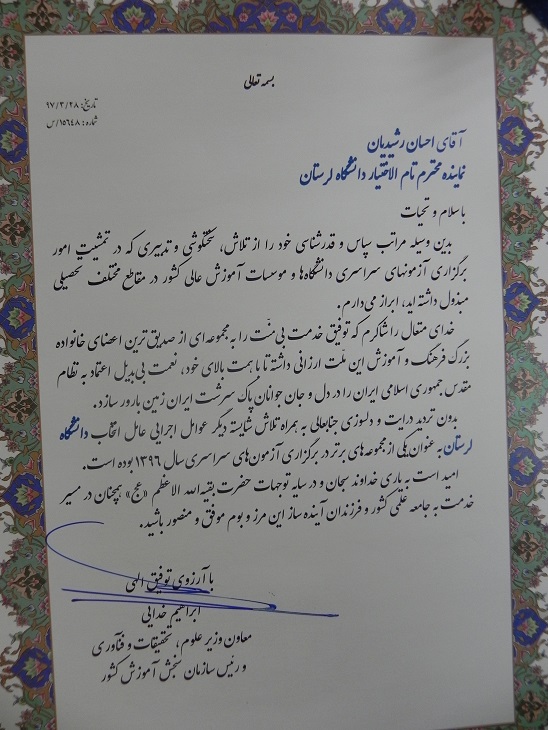 بسمه تعالی
تاریخ: ۹۷/۳/۲۸
شماره: ۱۵۶۴۸/س
آقای احسان رشیدیان
نماینده محترم تام الاختیار دانشگاه لرستان
باسلام و تحیات
بدین وسیله مراتب سپاس و قدرشناسی خود را از تلاش، سختکوشی و تدبیری که در تمشیت امور
برگزاری آزمونهای سراسری دانشگاه‌ها و موسسات آموزش عالی کشور در مقاطع مختلف تحصیلی
مبذول داشته اید، ابراز می‌دارم.
خدای متعال را شاکرم که توفیق خدمت بی‌منّت را به مجموعه‌ای از صدیق ترین اعضای خانواده
بزرگ فرهنگ و آموزش این ملّت ارزانی داشته تا با همت بالای خود، نعمت بی‌بدیل اعتماد به نظام
مقدس جمهوری اسلامی ایران را در دل و جان جوانان پاک سرشت ایران زمین بارور سازد.
بدون تردید درایت و دلسوزی جنابعالی به همراه تلاش شایسته دیگر عوامل اجرایی عامل انتخاب دانشگاه
لرستان به عنوان یکی از مجموعه‌های برتر در برگزاری آزمون‌های سراسری سال ۱۳۹۶ بوده است.
امید است به یاری خداوند سبحان و در سایه توجهات حضرت بقیه‌الله الاعظم «عج» همچنان در مسیر
خدمت به جامعه علمی کشور و فرزندان آینده ساز این مرز و بوم موفق و منصور باشید.
با آرزوی توفیق الهی
ابراهیم خدایی
معاون وزیر علوم، تحقیقات و فنّآوری
و رئیس سازمان سنجش آموزش کشور